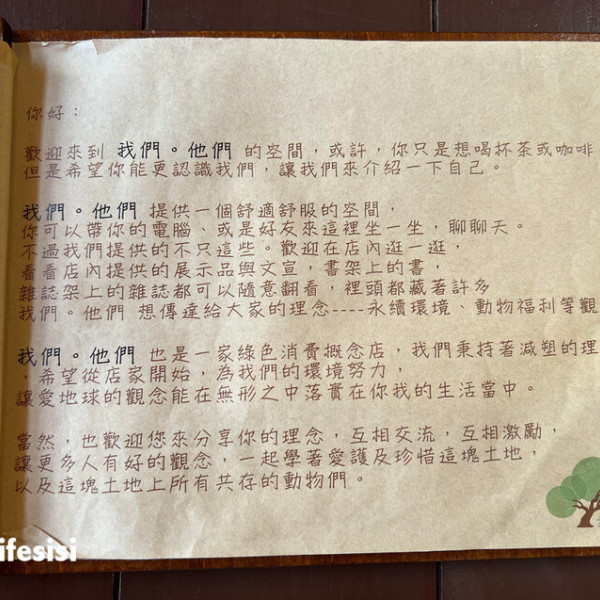 你好：
歡迎來到 我們。他們 的空間，或許，你只是想喝杯茶或咖啡
但是希望你能更認識我們，讓我們來介紹一下自己。
我們。他們 提供一個舒適舒服的空間，
你可以帶你的電腦、或是好友來這裡坐一坐，聊聊天。
不過我們提供的不只這些。歡迎在店內逛一逛，
看看店內提供的展示品與文宣，書架上的書，
雜誌架上的雜誌都可以隨意翻看，裡頭都藏著許多
我們。他們 想傳達給大家的理念----永續環境、動物福利等觀
我們。他們 也是一家綠色消費概念店，我們秉持著減塑的理
，希望從店家開始，為我們的環境努力，
讓愛地球的觀念能在無形之中落實在你我的生活當中。
當然，也歡迎您來分享你的理念，互相交流，互相激勵，
讓更多人有好的觀念，一起學著愛護及珍惜這塊土地，
以及這塊土地上所有共存的動物們。
ifesisi